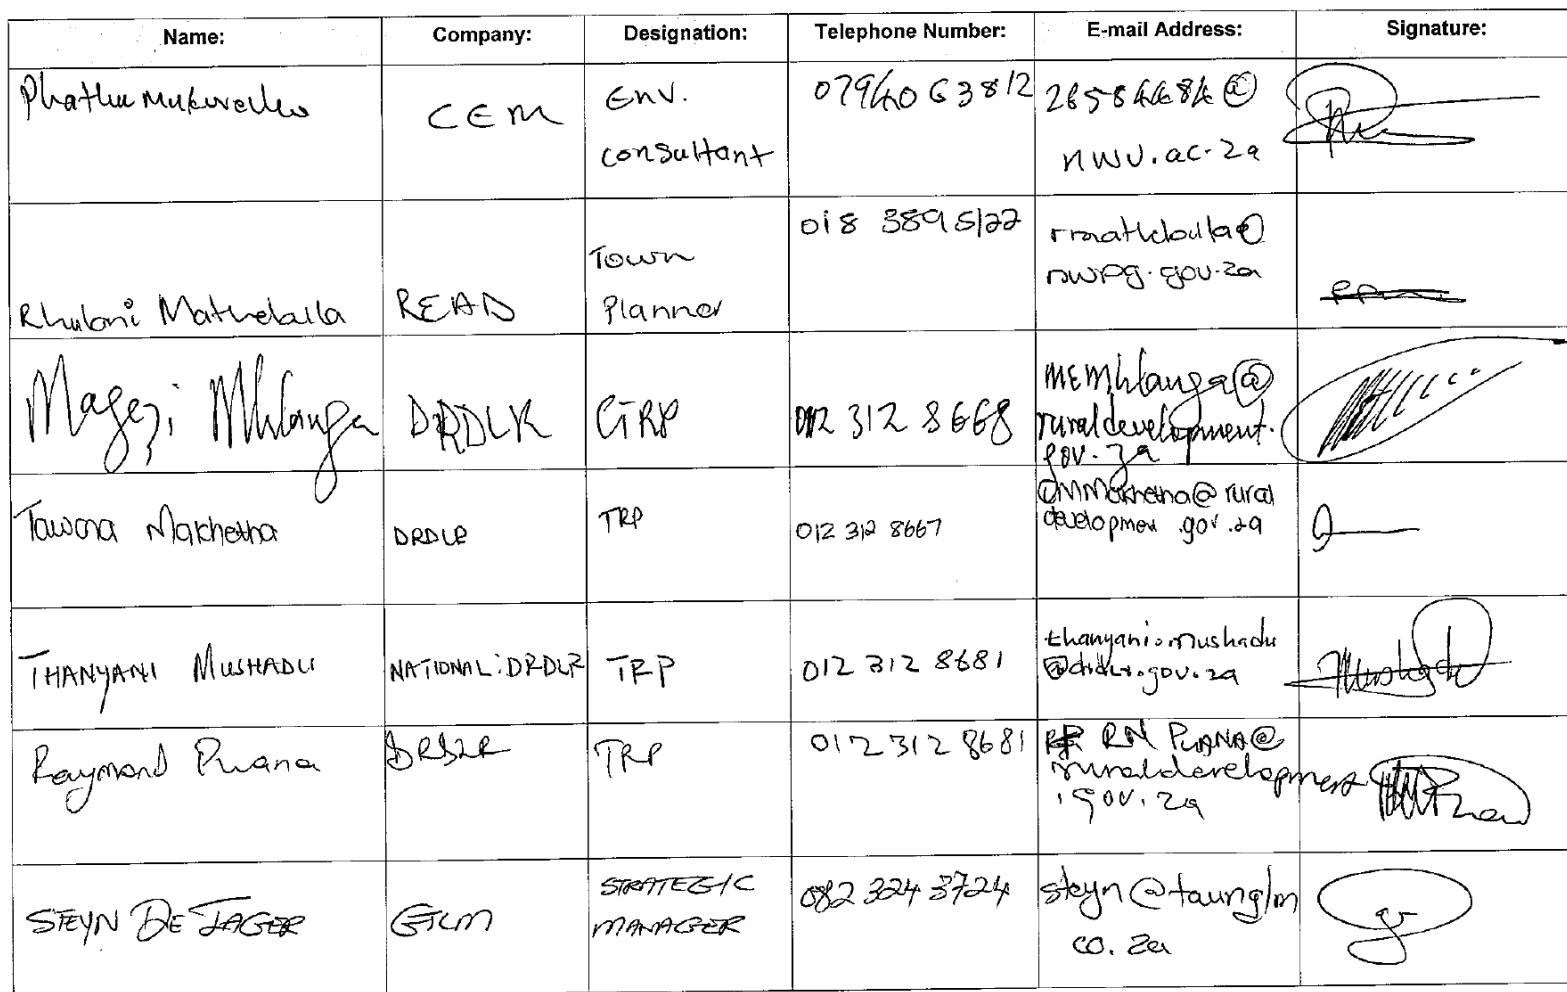 Name: Company: Designation: Telephone Number: E-mail Address: Signature:
CEM Env. consultant 0794063812 26584684@
nwu.ac.za
Rhulani Mathebula READ Town Planner 018 3895122 rmathebula@
nwpg.gov.za
Magezi Mhlanga DRDLR TRP 012 312 8668 MEMhlanga@
ruraldevelopment.
gov.za
Makhetha DRDLR TRP 012 312 8667 rural
gov.za
THANYANI MUSHADU NATIONAL:DRDLR TRP 012 312 8681 thanyani.mushadu
@drdlr.gov.za
Raymond Phana DRDLR TRP 012 312 8681 RN PHANA@
ruraldevelopment
.gov.za
STEYN DE JAGER GTLM STRATEGIC MANAGER 082 324 3724 steyn@taunglm
co.za